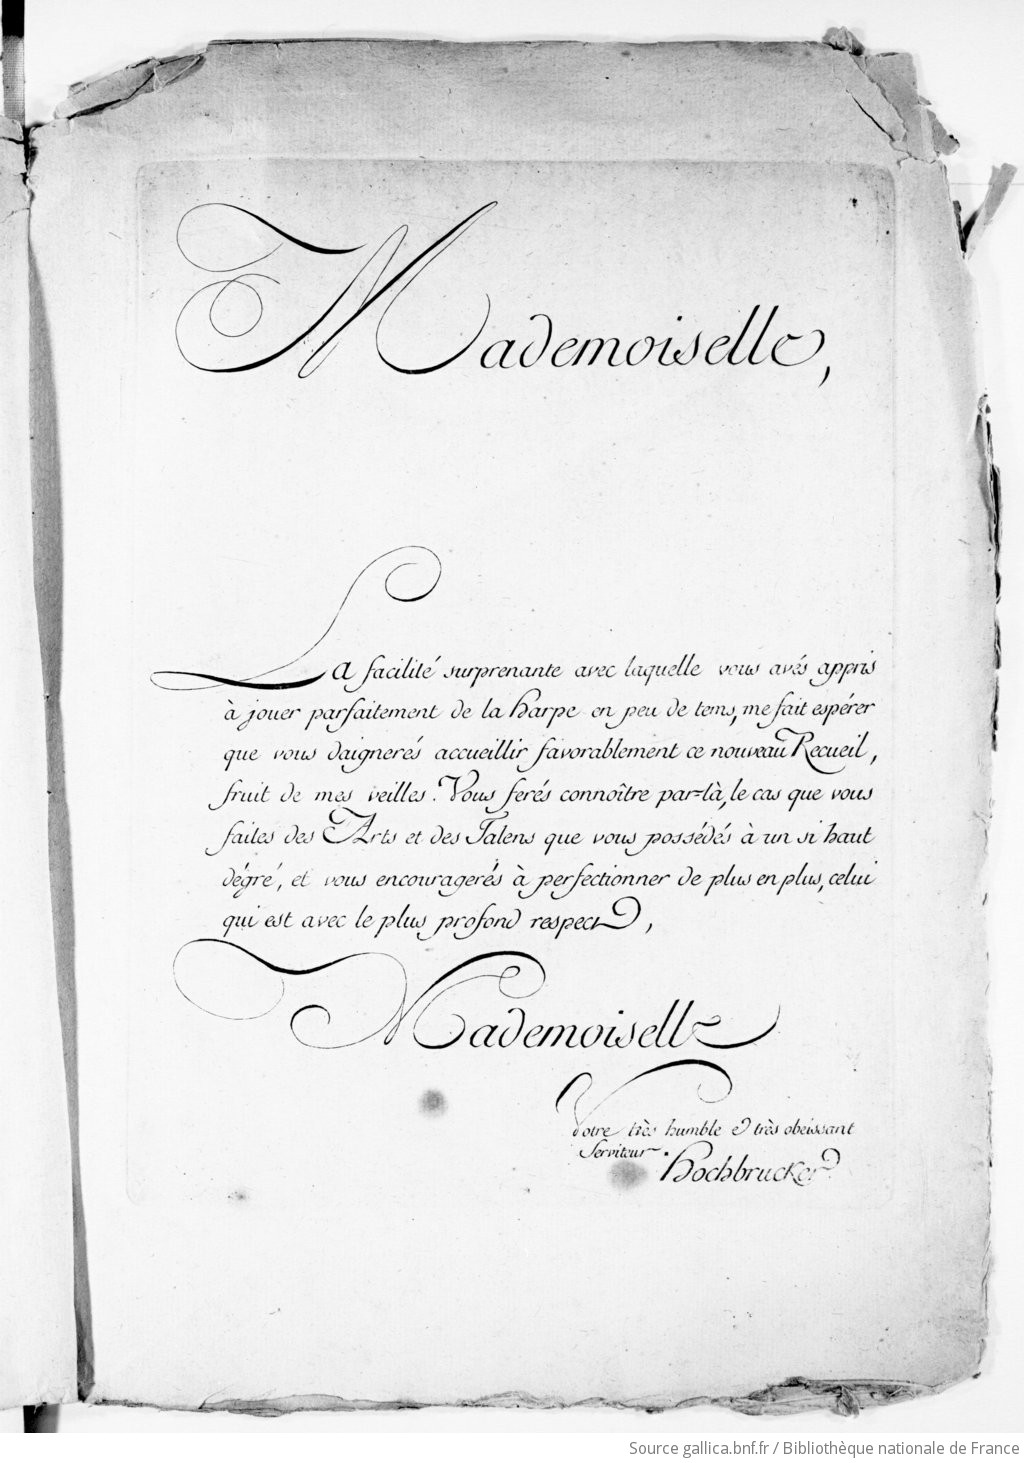 Mademoiselle,
La facilité surprenante avec laquelle vous avés appris
à jouer parfaitement de la harpe en peu de tems, me fait espérer
que vous daignerés accueillir favorablement ce nouveau Recueil,
fruit de mes veilles. Vous ferés connoître par-là, le cas que vous
faites des Arts et des Talens que vous possédés à un si haut
dégré, et vous encouragerés à perfectionner de plus en plus, celui
qui est avec le plus profond respect,
Mademoiselle
Votre très humble et très obeissant
Serviteur Hochbrucker.
Source gallica.bnf.fr / Bibliothèque nationale de France